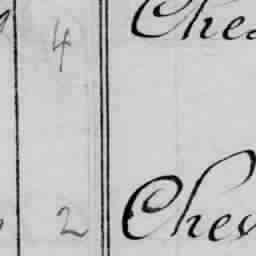 4 Che
2 Chev